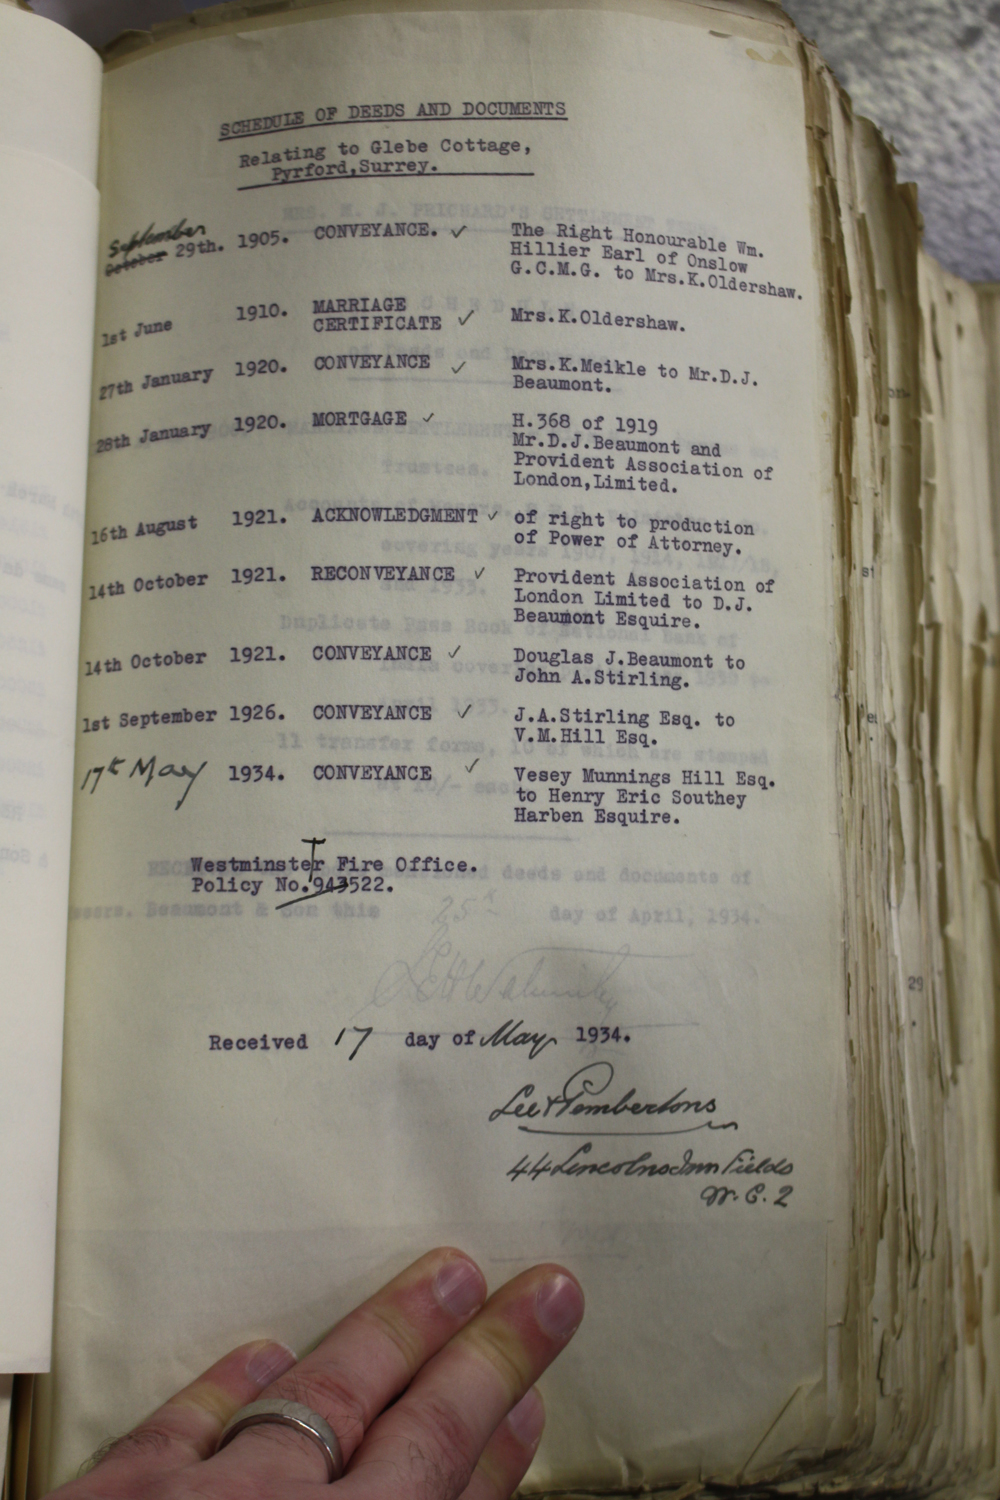 SCHEDULE OF DEEDS AND DOCUMENTS
Relating to Glebe Cottage,
Pyrford,Surrey.
September
October 29th. 1905. CONVEYANCE. ✓ The Right Honourable Wm.
Hillier Earl of Onslow
G.C.M.G. to Mrs.K.Oldershaw.
1st June 1910. MARRIAGE
CERTIFICATE ✓ Mrs.K.Oldershaw.
27th January 1920. CONVEYANCE ✓ Mrs.K.Meikle to Mr.D.J.
Beaumont.
28th January 1920. MORTGAGE ✓ H.368 of 1919
Mr.D.J.Beaumont and
Provident Association of
London,Limited.
16th August 1921. ACKNOWLEDGMENT ✓ of right to production
of Power of Attorney.
14th October 1921. RECONVEYANCE ✓ Provident Association of
London Limited to D.J.
Beaumont Esquire.
14th October 1921. CONVEYANCE ✓ Douglas J.Beaumont to
John A.Stirling.
1st September 1926. CONVEYANCE ✓ J.A.Stirling Esq. to
V.M.Hill Esq.
17th May 1934. CONVEYANCE ✓ Vesey Munnings Hill Esq.
to Henry Eric Southey
Harben Esquire.
Westminster Fire Office.
Policy No.943522.
Received 17 day of May 1934.
Lee & Pembertons
44 Lincolns Inn Fields
W.C.2
29